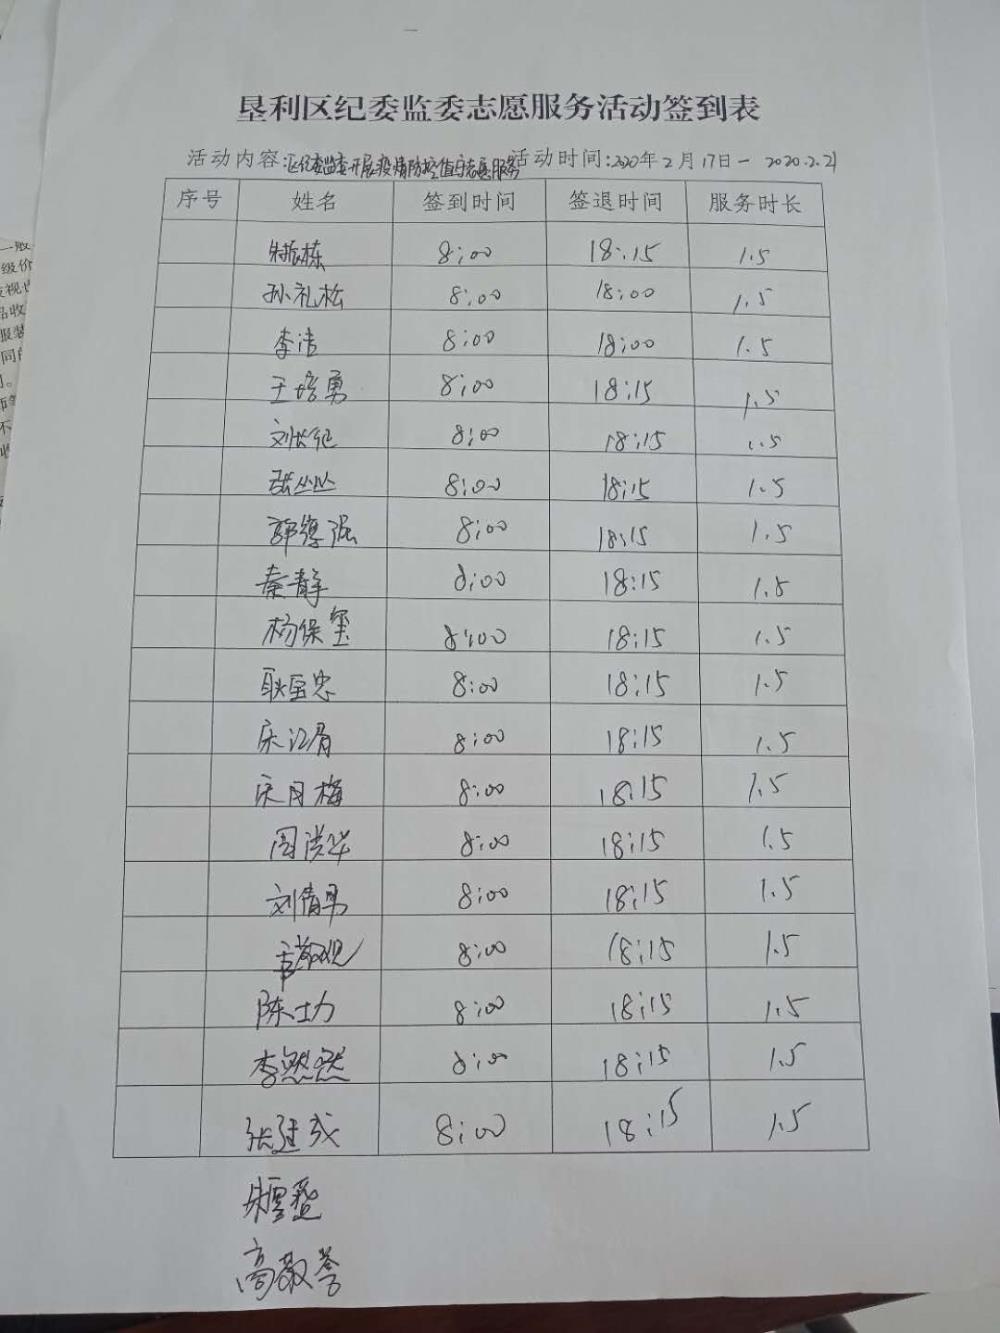 垦利区纪委监委志愿服务活动签到表
活动内容:区纪委监委开展疫情防控值守志愿服务 活动时间:2020年2月17日一 2020.2.21
序号 姓名 签到时间 签退时间 服务时长
朱振栋 8:00 18:15 1.5
孙礼松 8:00 18:00 1.5
李洁 8:00 18:00 1.5
王培勇 8:00 18:15 1.5
刘长纪 8:00 18:15 1.5
张丛丛 8:00 18:15 1.5
郭德强 8:00 18:15 1.5
秦静 8:00 18:15 1.5
杨保玺 8:00 18:15 1.5
耿宝忠 8:00 18:15 1.5
宋江眉 8:00 18:15 1.5
宋月梅 8:00 18:15 1.5
周洪华 8:00 18:15 1.5
刘倩男 8:00 18:15 1.5
8:00 18:15 1.5
陈士力 8:00 18:15 1.5
李燃燃 8:00 18:15 1.5
张廷成 8:00 18:15 1.5
高敬誉
一般
级价
歧视
品收
服装
同的
不